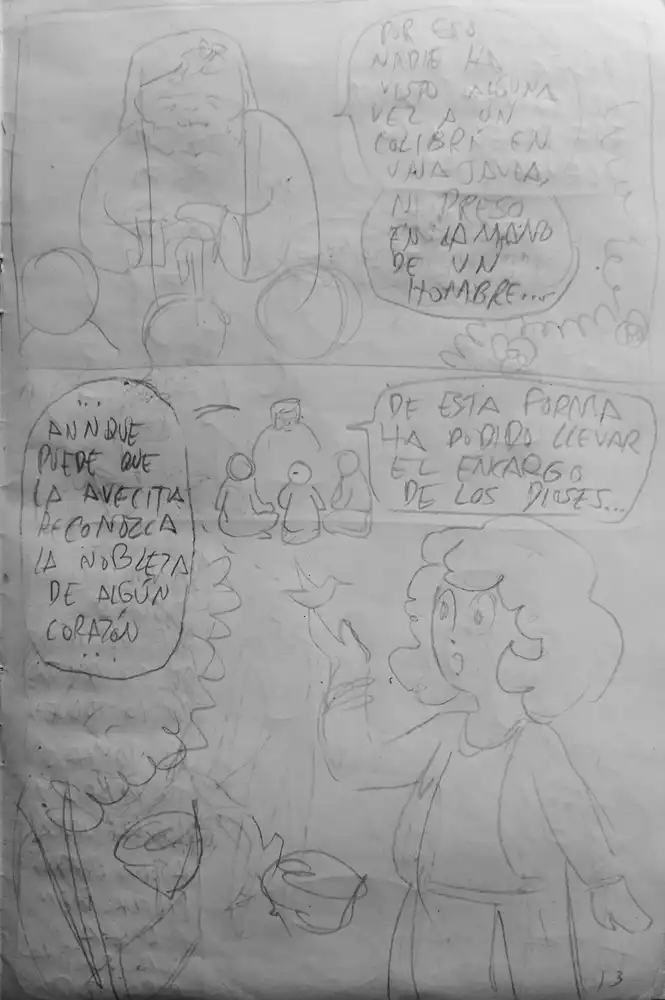 POR ESO
NADIE HA
VISTO ALGUNA
VEZ A UN
COLIBRÍ EN
UNA JAULA,
NI PRESO
EN LA MANO
DE UN
HOMBRE...
DE ESTA FORMA
HA PODIDO LLEVAR
EL ENCARGO
DE LOS DIOSES...
...
AUNQUE
PUEDE QUE
LA AVECITA
RECONOZCA
LA NOBLEZA
DE ALGÚN
CORAZÓN
...
13